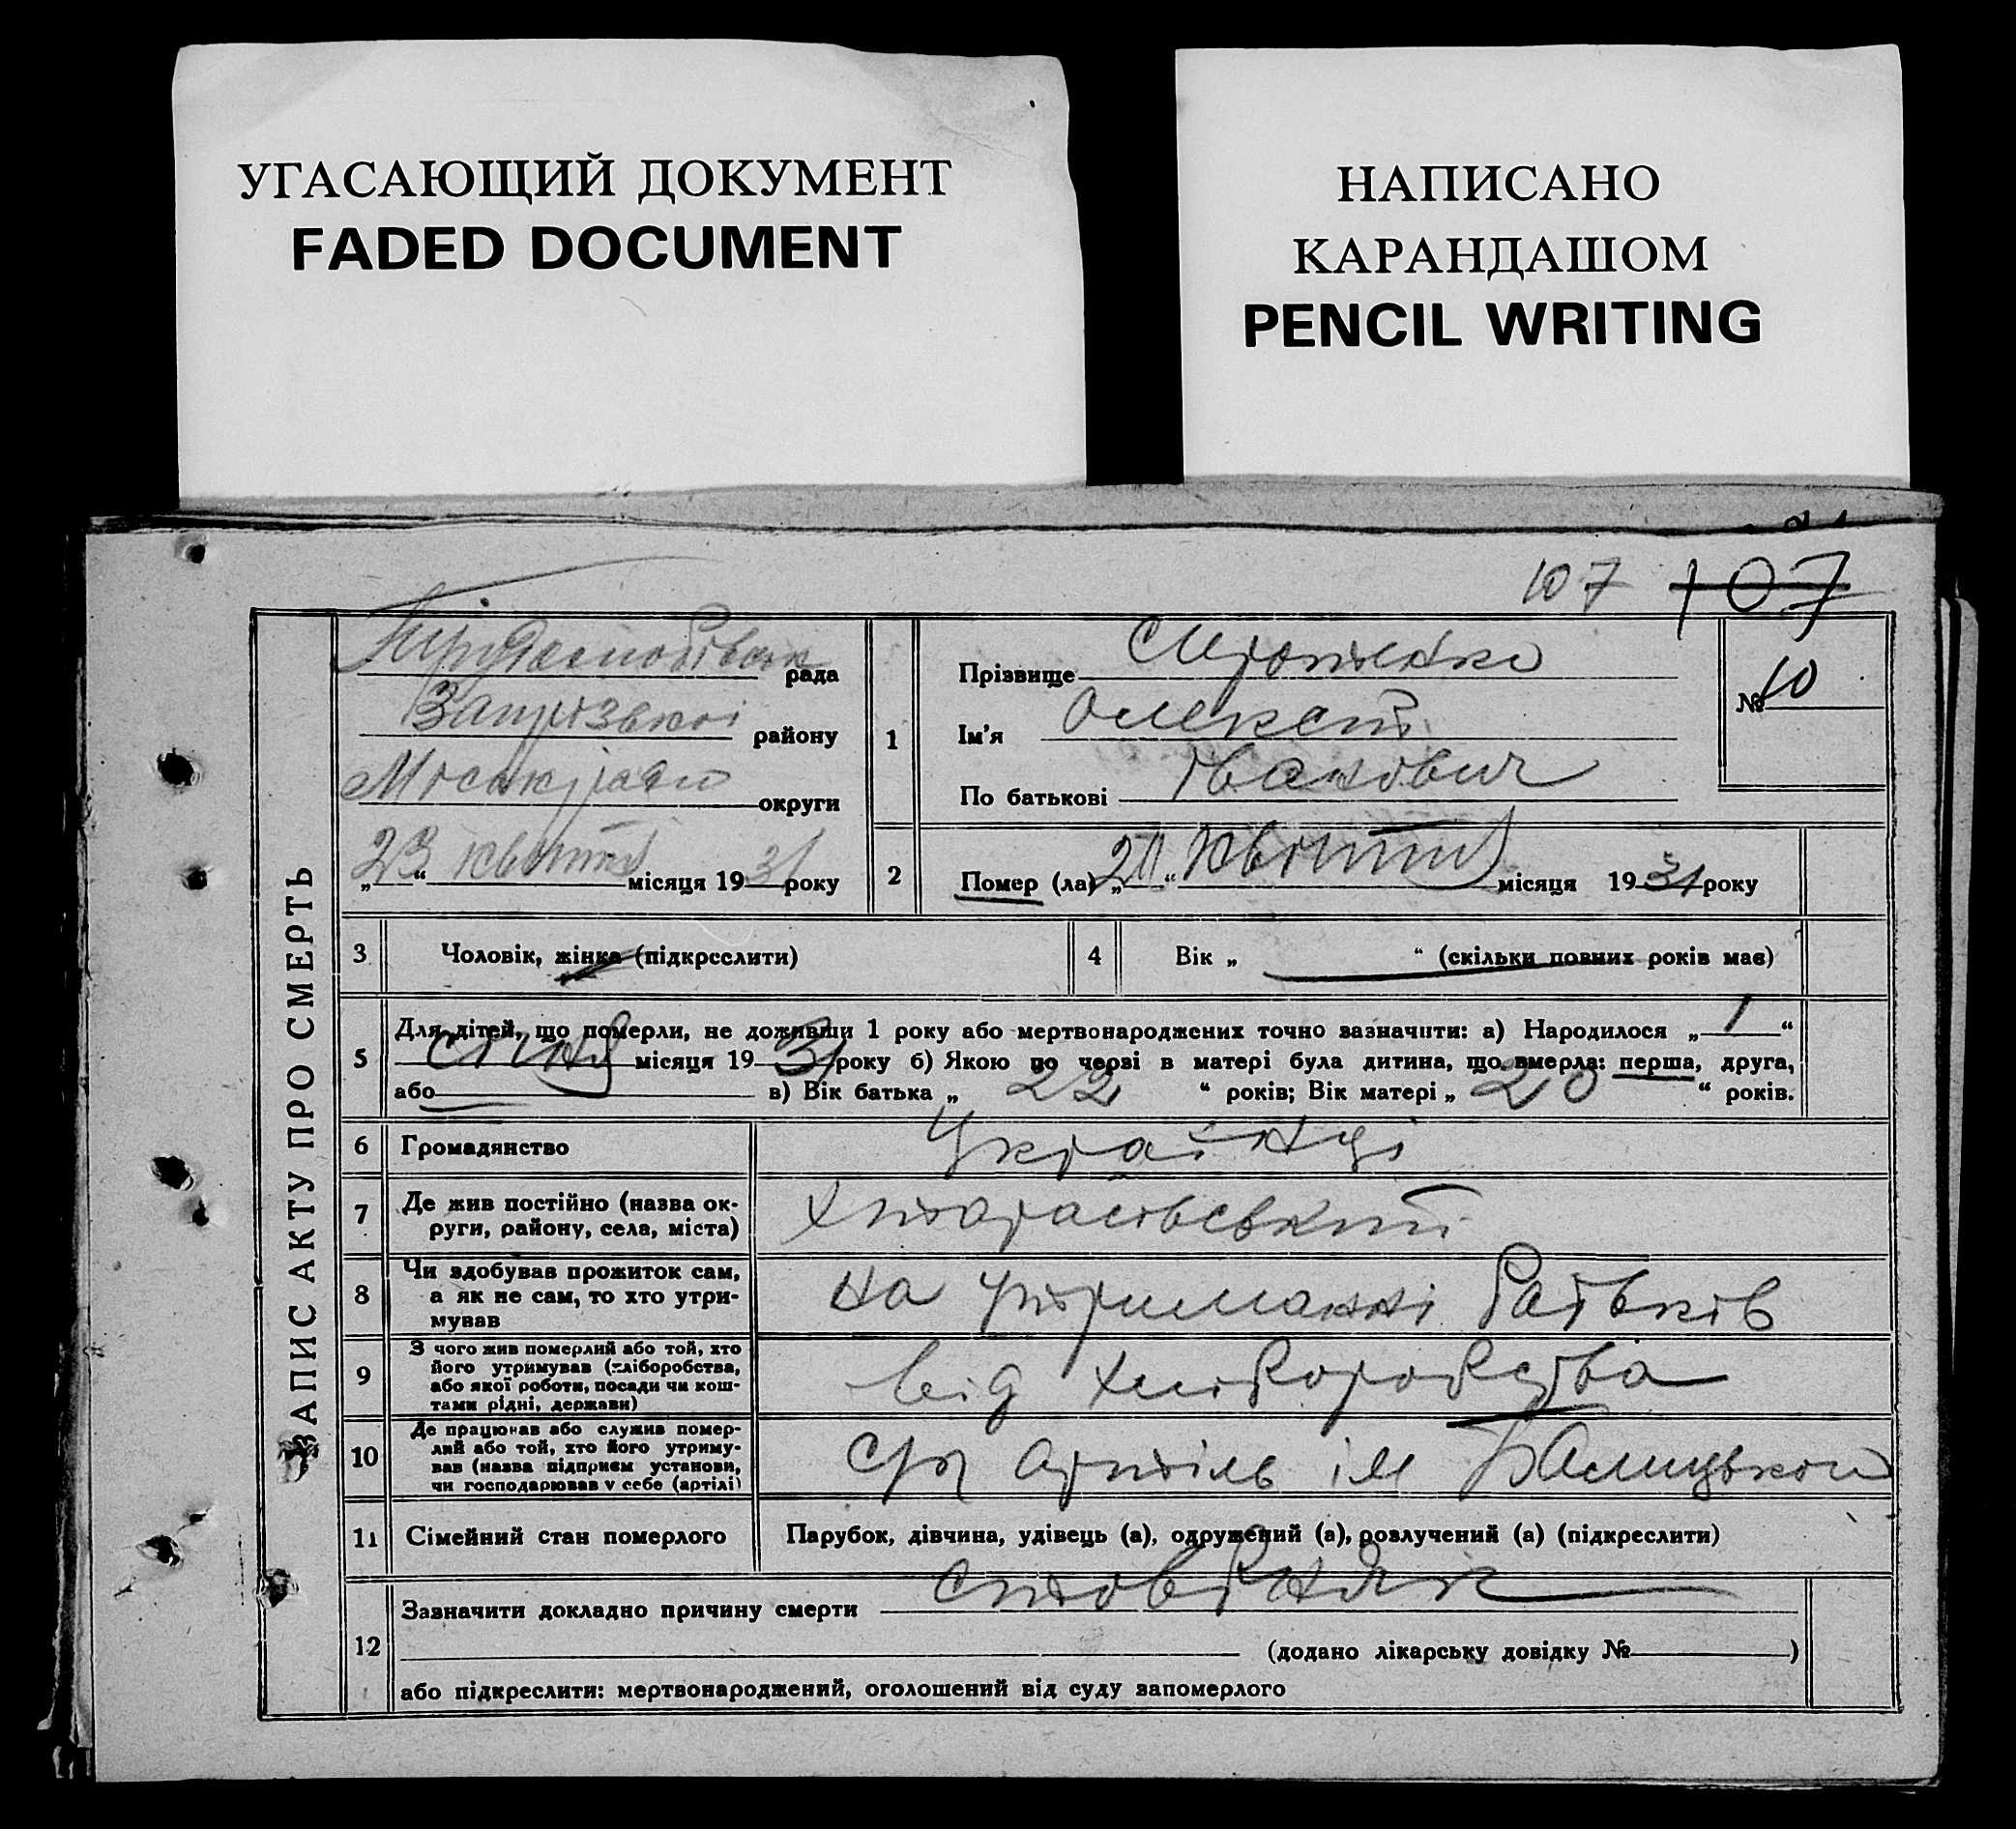 УГАСАЮЩИЙ ДОКУМЕНТ
FADED DOCUMENT
НАПИСАНО
КАРАНДАШОМ
PENCIL WRITING
107 107
ЗАПИС АКТУ ПРО СМЕРТЬ
рада
району
округи
„23“ квітня місяця 1931 року
1
Прізвище
Ім'я Олексій
По батькові Іванович
№ 10
2
Помер (ла) „ “ квітня місяця 1931 року
3 Чоловік, жінка (підкреслити)
4 Вік „ “ (скільки повних років має)
5 Для дітей, що померли, не доживши 1 року або мертвонароджених точно зазначити: а) Народилося „1“
січня місяця 1931 року б) Якою по черзі в матері була дитина, що вмерла: перша, друга,
або в) Вік батька „22“ років; Вік матері „20“ років.
6 Громадянство Українці
7 Де жив постійно (назва ок-
руги, району, села, міста)
8 Чи здобував прожиток сам,
а як не сам, то хто утри-
мував
на утриманні батьків
9 З чого жив померлий або той, хто
його утримував (хліборобства,
або якої роботи, посади чи кош-
тами рідні, держави)
від хліборобства
10 Де працював або служив помер-
лий або той, хто його утриму-
вав (назва підприєм установи,
чи господарював у себе (артілі)
артіль ім Балицького
11 Сімейний стан померлого Парубок, дівчина, удівець (а), одружений (а), розлучений (а) (підкреслити)
12 Зазначити докладно причину смерти стовбняк
(додано лікарську довідку № )
або підкреслити: мертвонароджений, оголошений від суду запомерлого